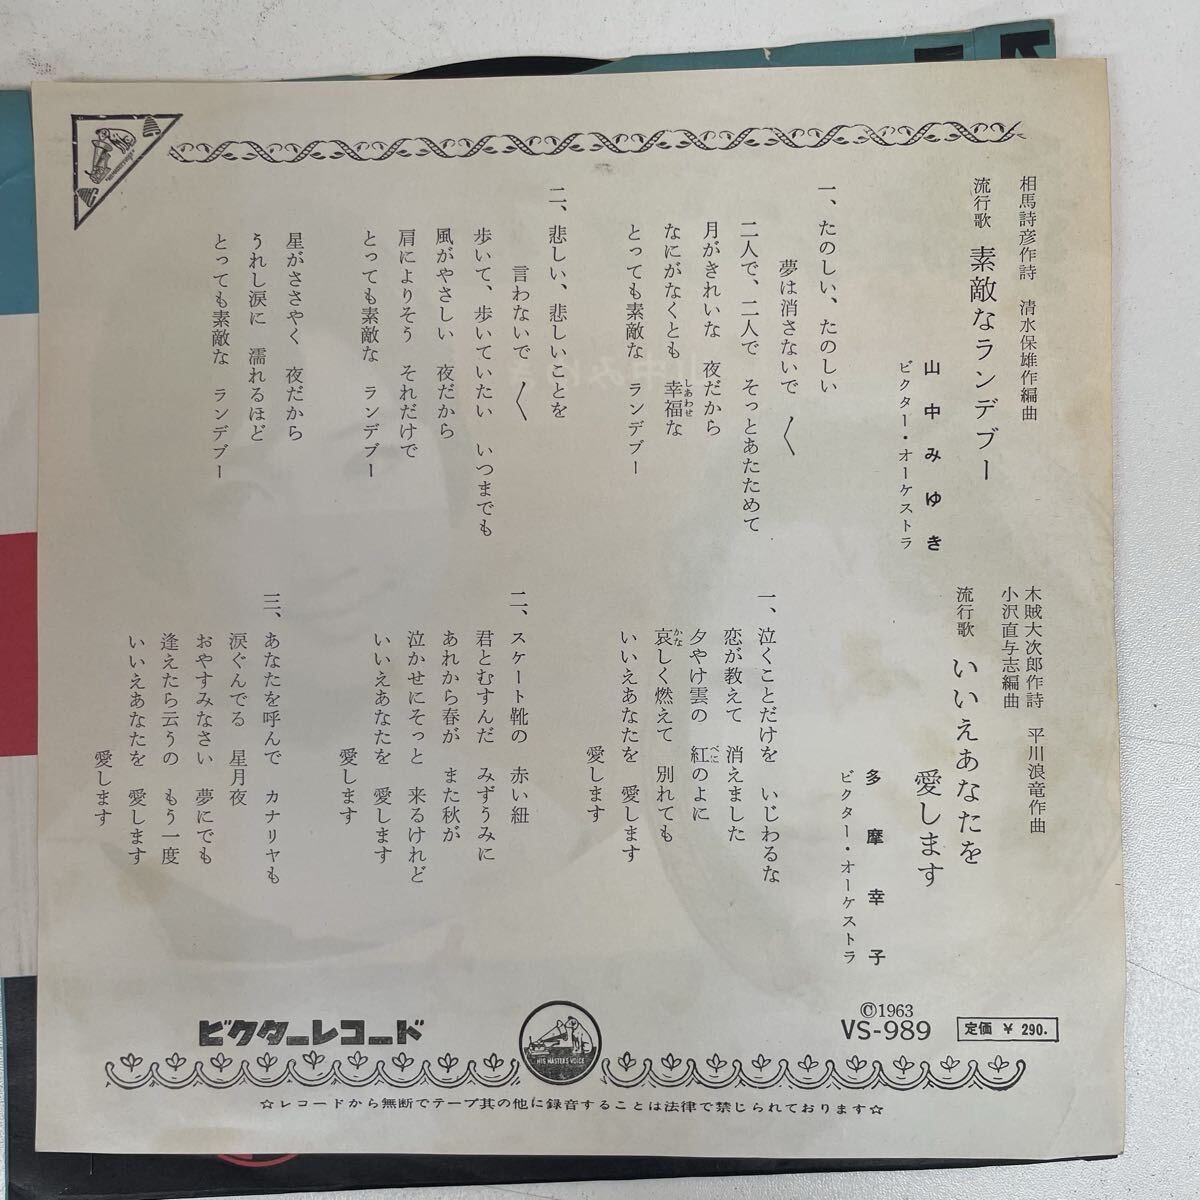 相馬詩彦作詩　清水保雄作編曲
流行歌　素敵なランデブー
山中みゆき
ビクター・オーケストラ
一、たのしい、たのしい
夢は消さないで　〱
二人で、二人で　そっとあたためて
月がきれいな　夜だから
なにがなくとも　幸福な
しあわせ
とっても素敵な　ランデブー
二、悲しい、悲しいことを
言わないで　〱
歩いて、歩いていたい　いつまでも
風がやさしい　夜だから
肩によりそう　それだけで
とっても素敵な　ランデブー
星がささやく　夜だから
うれし涙に　濡れるほど
とっても素敵な　ランデブー
木賊大次郎作詩　平川浪竜作曲
小沢直与志編曲
流行歌　いいえあなたを
愛します
多摩幸子
ビクター・オーケストラ
一、泣くことだけを　いじわるな
恋が教えて　消えました
夕やけ雲の　紅のよに
べに
哀しく燃えて　別れても
かな
いいえあなたを　愛します
愛します
二、スケート靴の　赤い紐
君とむすんだ　みずうみに
あれから春が　また秋が
泣かせにそっと　来るけれど
いいえあなたを　愛します
愛します
三、あなたを呼んで　カナリヤも
涙ぐんでる　星月夜
おやすみなさい　夢にでも
逢えたら云うの　もう一度
いいえあなたを　愛します
愛します
ビクターレコード
HIS MASTER'S VOICE
©1963
VS-989
定価 ¥ 290.
☆レコードから無断でテープ其の他に録音することは法律で禁じられております☆